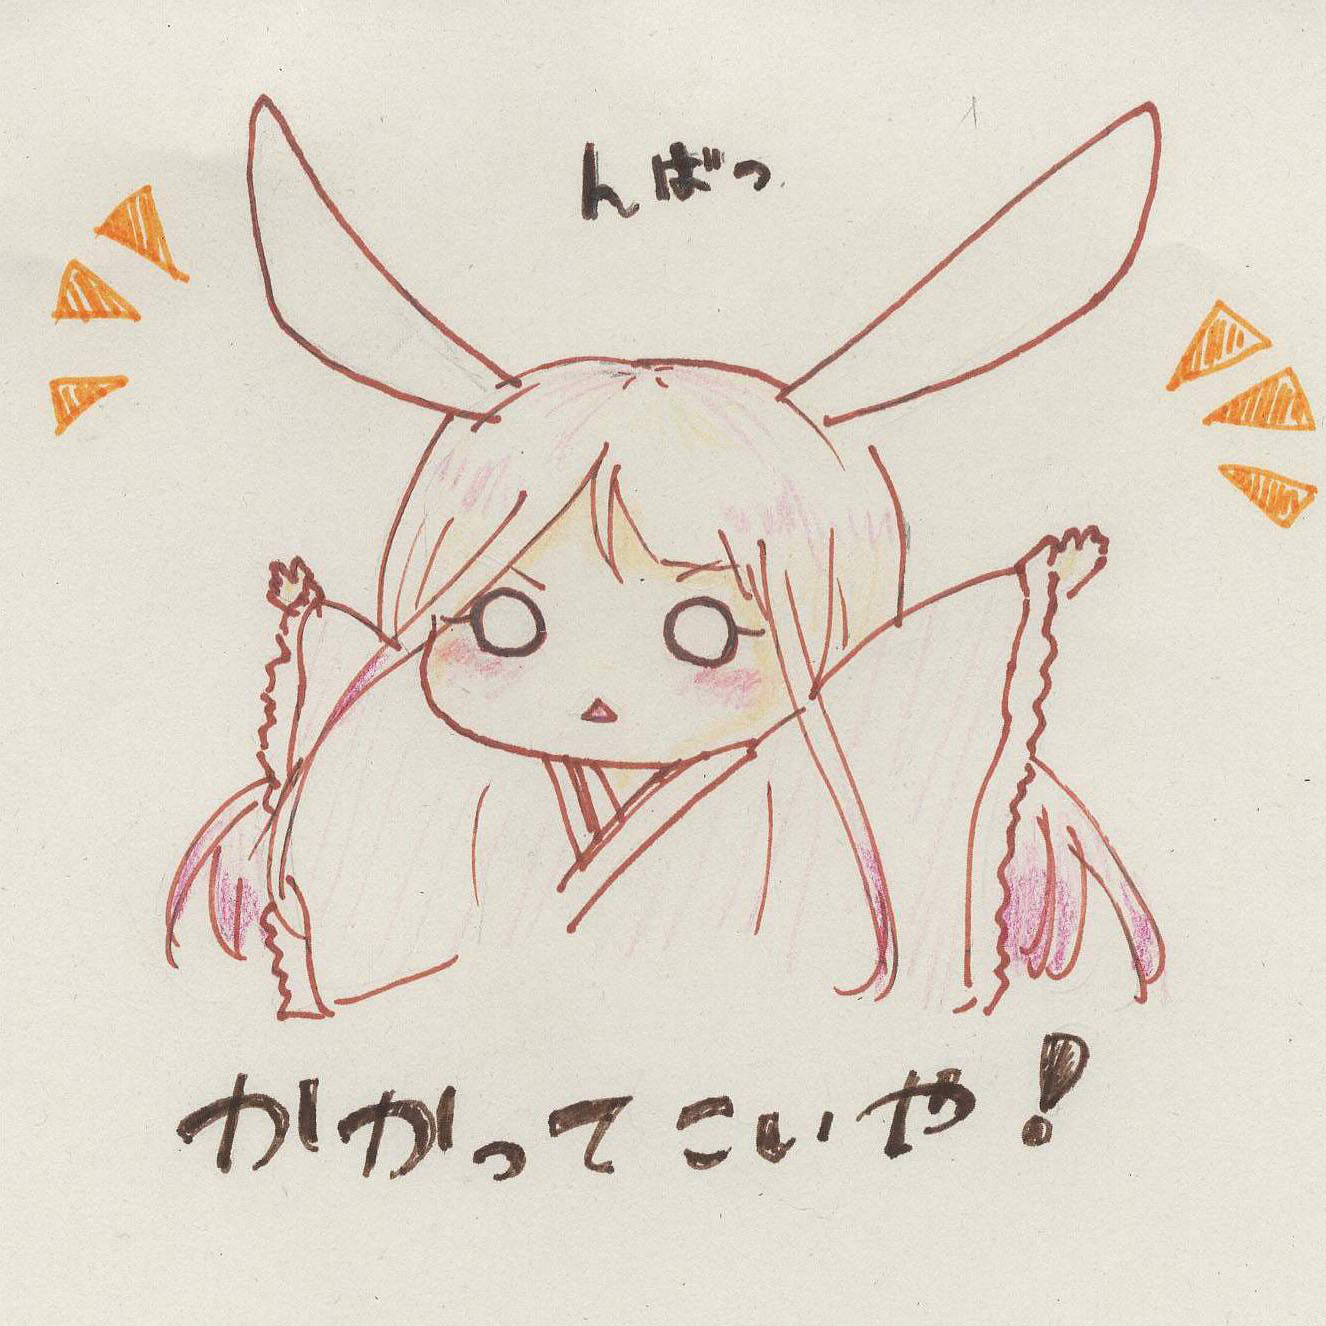 んばっ
かかってこいや!